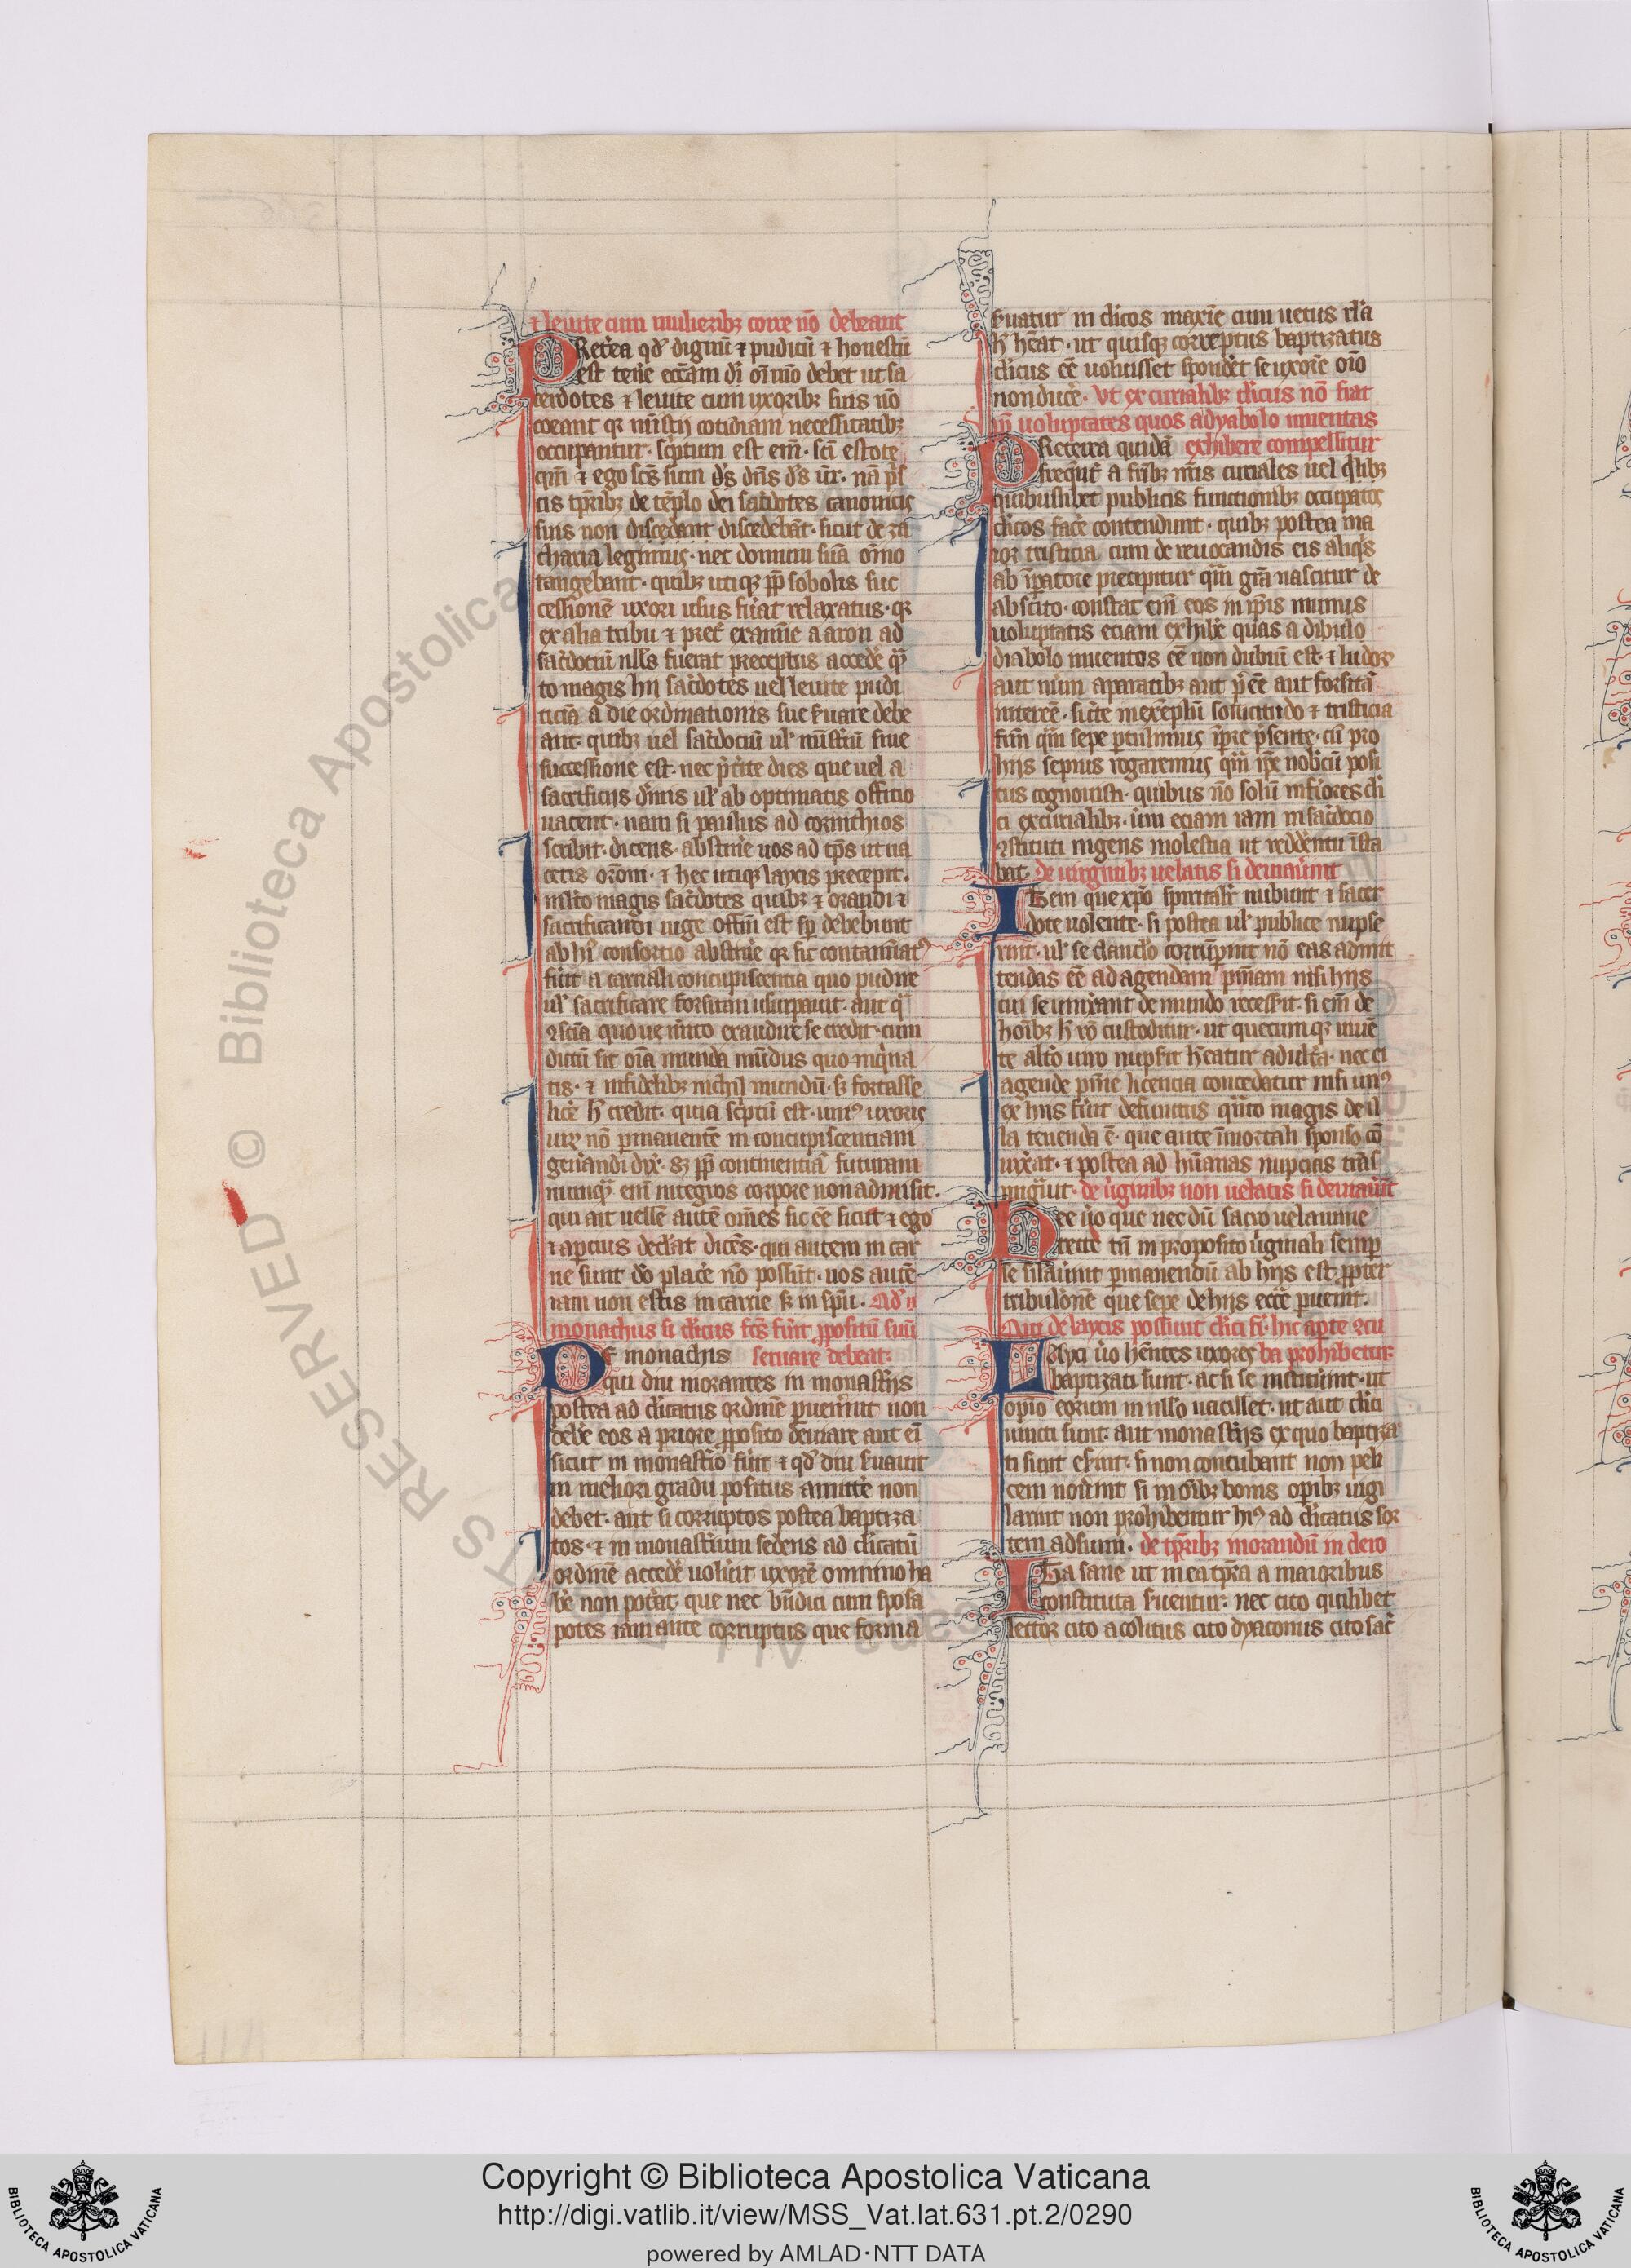 et leuite cum mulieribꝫ coire nō debeant
PRet̾ea qd̾ dignū ⁊ pudicū ⁊ honestū
est tene eccām dī om̄nio debet ut sa
cerdotes ⁊ leuite cum uxoribꝫ suis nō
coeant qr mīstīj cotidiani necessitatibꝫ
occupantur · sc̾ptum est em̄ · scī estote
qm̄ ⁊ ego sc̄s sum d̄s dn̄s d̄s ūr · nā p̄s
cis tp̄ribꝫ de tēplo dei sac̾dotes canonicis
suis non discedant discedebāt · sicut de za
charia legimus · nec domum suā om̄no
tangebant · quibꝫ utiqꝫ ꝓp̄ sobolis suc
cessionē uxori usus fu̾at relaxatus · qr
ex alia tribu ⁊ pret̾ ex semīe aaron ad
sac̾dociū nll̄s fuerat preceptus acced̾e qn̄
to magis hij sac̾dotes uel leuite pudi
ticiā a die ordinationis sue s̾uare debe
ant · quibꝫ uel sac̾dociū ul̾ mīst̾iū sine
successione est · nec p̾t̾ite dies que uel a
sacrificijs diuinis ul̾ ab optimatis officio
uacent · nam si paulus ad corinthios
scribit · dicens · abstine uos ad tp̄s ut ua
cetis or̄oni · ⁊ hec utiqꝫ laycis precepit ·
multo magis sac̾dotes quibꝫ ⁊ orandi ⁊
sacrificandi iuge offm̄ est sp̄ debebunt
ab h̾ consortio abstine qr sic contamīatꝰ
fu̾it a carnali concupiscentia quo pudore
ul̾ sacrificare forsitan usurpauit · aut qͣ
ꝯsciā quoue m̾ito exaudire se credit · cum
dictū sit om̄a munda mūdus quoinqͥna
tis · ⁊ infidelibꝫ nichil mundū · s̾ fortasse
lice h̾ credit · quia sc̾ptū est · uniꝰ uxoris
uirꝫ nō p̱manentē in concupiscentiam
gen̾andi dix̾ · sꝫ ꝓp̄ continentiā futuram
nunqͣ eni integros corpore non admisit ·
qui ait uellē autē om̄es sic ēē sicut ⁊ ego
⁊ ap̱cius declāt dicēs · qui autem in car
ne sunt dō place nō possūt · uos autē
iam non estis in carne s̾ in sp̄u · Ad n̄
monachus si cl̾icus fc̄s fu̾it ꝓpositū suū
De monachis seruare debeat ·
qui diu morantes in monast̾ijs
postea ad cl̾icatus ordinē p̱uen̾int non
debe eos a priore ꝓposito deuiare aut eī
sicut in monast̾io fu̾it ⁊ qd̾ diu s̾uauit
in meliori gradu positus amitte non
debet · aut si corruptos postea baptiza
tos · ⁊ in monast̾ium sedens ad cl̾icatū
ordinē accede uolu̾it uxorē omnino ha
be non pot̾at · que nec bn̄dici cum sposa
potes iam ante corruptus que forma
s̾uatur in cl̾icos maxīe cum uetus rl̄a
h̾ hēat · ut quisqꝫ correptus baptizatus
cl̾icus ēē uoluisset spondet se uxorē om̄o
non duce · Vt ex curialibꝫ cl̾icus nō fiat
qͥ uoluptates quos adyabolo inuentas
PReterea quidā exhibere compellitur
freqn̄t̾ a fr̄ibꝫ nr̄is curiales uel qͥlibꝫ
quibuslibet publicis functionibꝫ occupatos
cl̾icos face contendunt · quibꝫ postea ma
ior tristicia cum de reuocandis eis aliqͥs
ab īp̱atore precipitur qm̄ grā nascitur de
abscito · constat em̄ eos in ip̄is munus
uoluptatis eciam exhibe quas a dibulo
diabolo inuentos ēē non dubiū est · ⁊ ludoꝝ
aut num aparatibꝫ aut p̾ēē aut forsitā
int̾ēē · sic̾te in exēplū sollicitudo ⁊ tristicia
fr̄m qm̄ sepe p̱tulimus īp̱re p̾sente · cū pro
hijs sepius rogaremus qm̄ ip̄e nobcū posi
tus cognouisti · quibus nō solū inf̾iores cl̾i
ci ex curialibꝫ · u̾m eciam iam in sac̾docio
ꝯstituti ingens molestia ut reddentu īsta
bat · de uirginibꝫ uelatis si deuau̾int
ITem que xp̄o spiritalit̾ nubunt ⁊ sacer
dote uolente · si postea ul̾ publice nupse
rint · ul̾ se clanclo corrūp̱int nō eas admit
tendas ēē ad agendam pn̄iam nisi hijs
cui se iunx̾ant de mundo recess̾it · si em̄ de
hoībꝫ h̾ rō custoditur · ut quecumqꝫ uiuē
te alt̾o uiro nups̾it hēatur adult̾a · nec ei
agende pn̄ie licencia concedatur nisi unꝰ
ex hijs fu̾it defunctus qͣnto magis de il
la tenenda ē · que ante īmortali sponso cō
iux̾at · ⁊ postea ad hūanas nupcias trās
migu̾it · de u̾ginibꝫ non uelatis si deuiau̾it
Hee u̾o que nec dū sacro uelamine
tecte tn̄ in proposito u̾ginali semp̱
se silau̾int p̱manendū ab hijs est ꝓpter
tribulōnē que sepe de hijs ecc̄e p̱uenit ·
Qui de laycis possunt cl̾ici fi̾ · hic ap̱te ꝯcu
Layci u̾o hēntes uxores ba prohibetur
baptizati sunt · ac si se institu̾int · ut
opīo eorum in ullo uacillet · ut aut cl̾ici
uincti sunt · aut monast̾ijs ex quo baptiza
ti sunt es̾int · si non concubant non peli
cem nou̾int si in oībꝫ bonis op̱ibꝫ uigi
larint non prohibentur hiꝰ ad cl̾icatus sor
tem adsumi · de tp̄ribꝫ morandū in clero
ITa sane ut in ea tp̄ra a maioribus
constituta s̾uentur · nec cito quilibet
lector cito acolitus cito dyaconus cito sac̾
Copyright © Biblioteca Apostolica Vaticana
http://digi.vatlib.it/view/MSS_Vat.lat.631.pt.2/0290
powered by AMLAD·NTT DATA
BIBLIOTECA APOSTOLICA VATICANA
BIBLIOTECA APOSTOLICA VATICANA